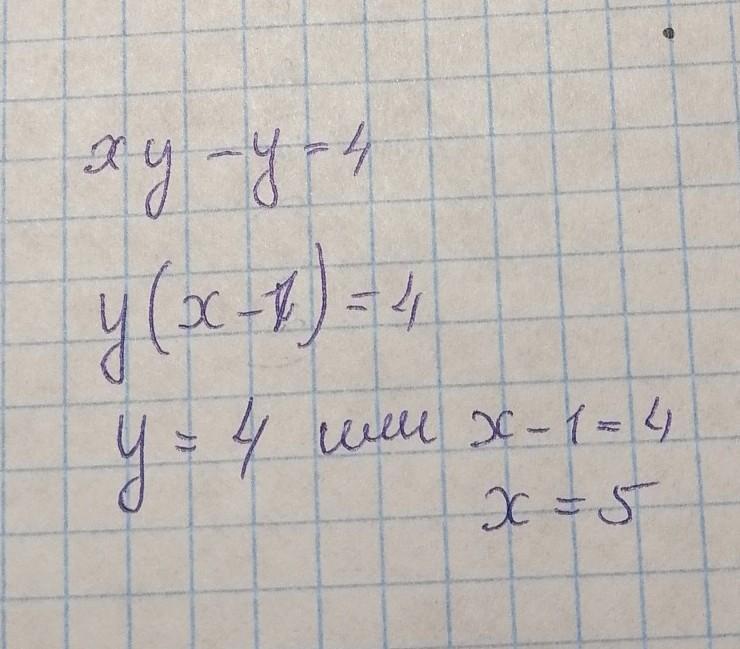 xy - y = 4
y(x - 1) = 4
y = 4 или x - 1 = 4
x = 5